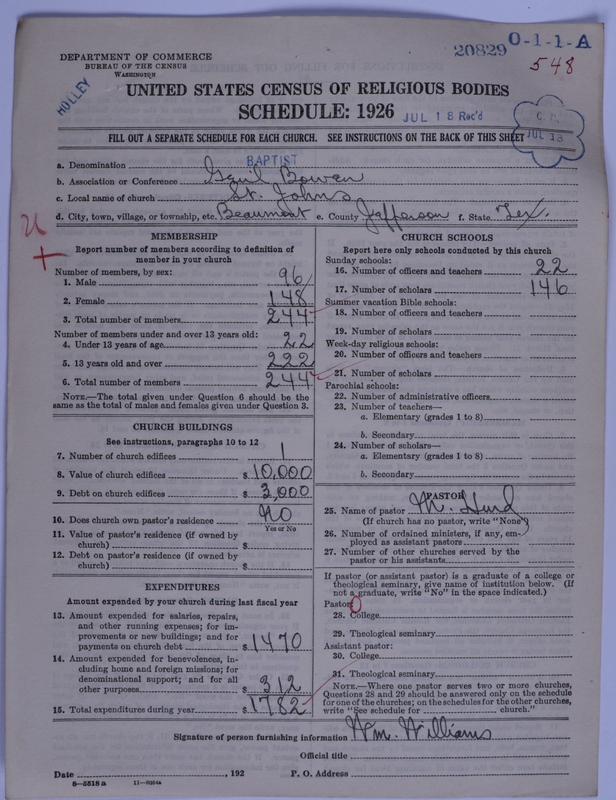 DEPARTMENT OF COMMERCE
BUREAU OF THE CENSUS
WASHINGTON
HOLLEY
20829 0-1-1-A
548
UNITED STATES CENSUS OF RELIGIOUS BODIES
SCHEDULE: 1926
JUL 18 Rec'd
JUL 18
FILL OUT A SEPARATE SCHEDULE FOR EACH CHURCH. SEE INSTRUCTIONS ON THE BACK OF THIS SHEET
a. Denomination BAPTIST
b. Association or Conference Gail Bowen
c. Local name of church St. Johns
d. City, town, village, or township, etc. Beaumont e. County Jefferson f. State Tex.
MEMBERSHIP
Report number of members according to definition of
member in your church
Number of members, by sex:
1. Male 96
2. Female 148
3. Total number of members 244
Number of members under and over 13 years old:
4. Under 13 years of age 22
5. 13 years old and over 222
6. Total number of members 244
NOTE.—The total given under Question 6 should be the
same as the total of males and females given under Question 3.
CHURCH BUILDINGS
See instructions, paragraphs 10 to 12
7. Number of church edifices 1
8. Value of church edifices $ 10,000
9. Debt on church edifices $ 3,000
10. Does church own pastor's residence No
Yes or No
11. Value of pastor's residence (if owned by
church) $
12. Debt on pastor's residence (if owned by
church) $
EXPENDITURES
Amount expended by your church during last fiscal year
13. Amount expended for salaries, repairs,
and other running expenses; for im-
provements or new buildings; and for
payments on church debt $ 1470
14. Amount expended for benevolences, in-
cluding home and foreign missions; for
denominational support; and for all
other purposes $ 312
15. Total expenditures during year $ 1782
CHURCH SCHOOLS
Report here only schools conducted by this church
Sunday schools:
16. Number of officers and teachers 22
17. Number of scholars 146
Summer vacation Bible schools:
18. Number of officers and teachers
19. Number of scholars
Week-day religious schools:
20. Number of officers and teachers
21. Number of scholars
Parochial schools:
22. Number of administrative officers
23. Number of teachers—
a. Elementary (grades 1 to 8)
b. Secondary
24. Number of scholars—
a. Elementary (grades 1 to 8)
b. Secondary
PASTOR
25. Name of pastor M. Hurd
(If church has no pastor, write "None")
26. Number of ordained ministers, if any, em-
ployed as assistant pastors
27. Number of other churches served by the
pastor or his assistants
If pastor (or assistant pastor) is a graduate of a college or
theological seminary, give name of institution below. (If
not a graduate, write "No" in the space indicated.)
Pastor:
28. College
29. Theological seminary
Assistant pastor:
30. College
31. Theological seminary
NOTE.—Where one pastor serves two or more churches,
Questions 28 and 29 should be answered only on the schedule
for one of the churches; on the schedules for the other churches,
write "See schedule for church."
Signature of person furnishing information Wm. Williams
Official title
Date , 192 P. O. Address
8—5518 a